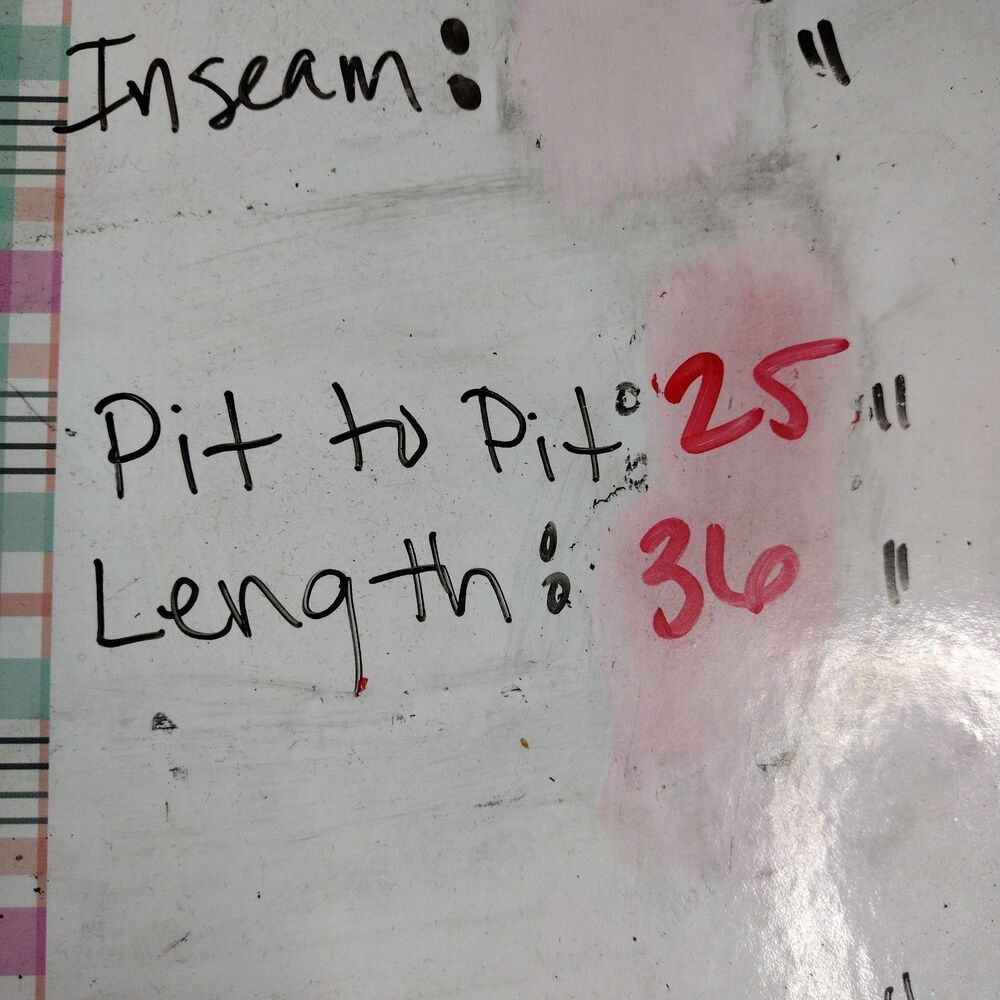 Inseam: "
Pit to Pit: 25 "
Length: 36 "
"